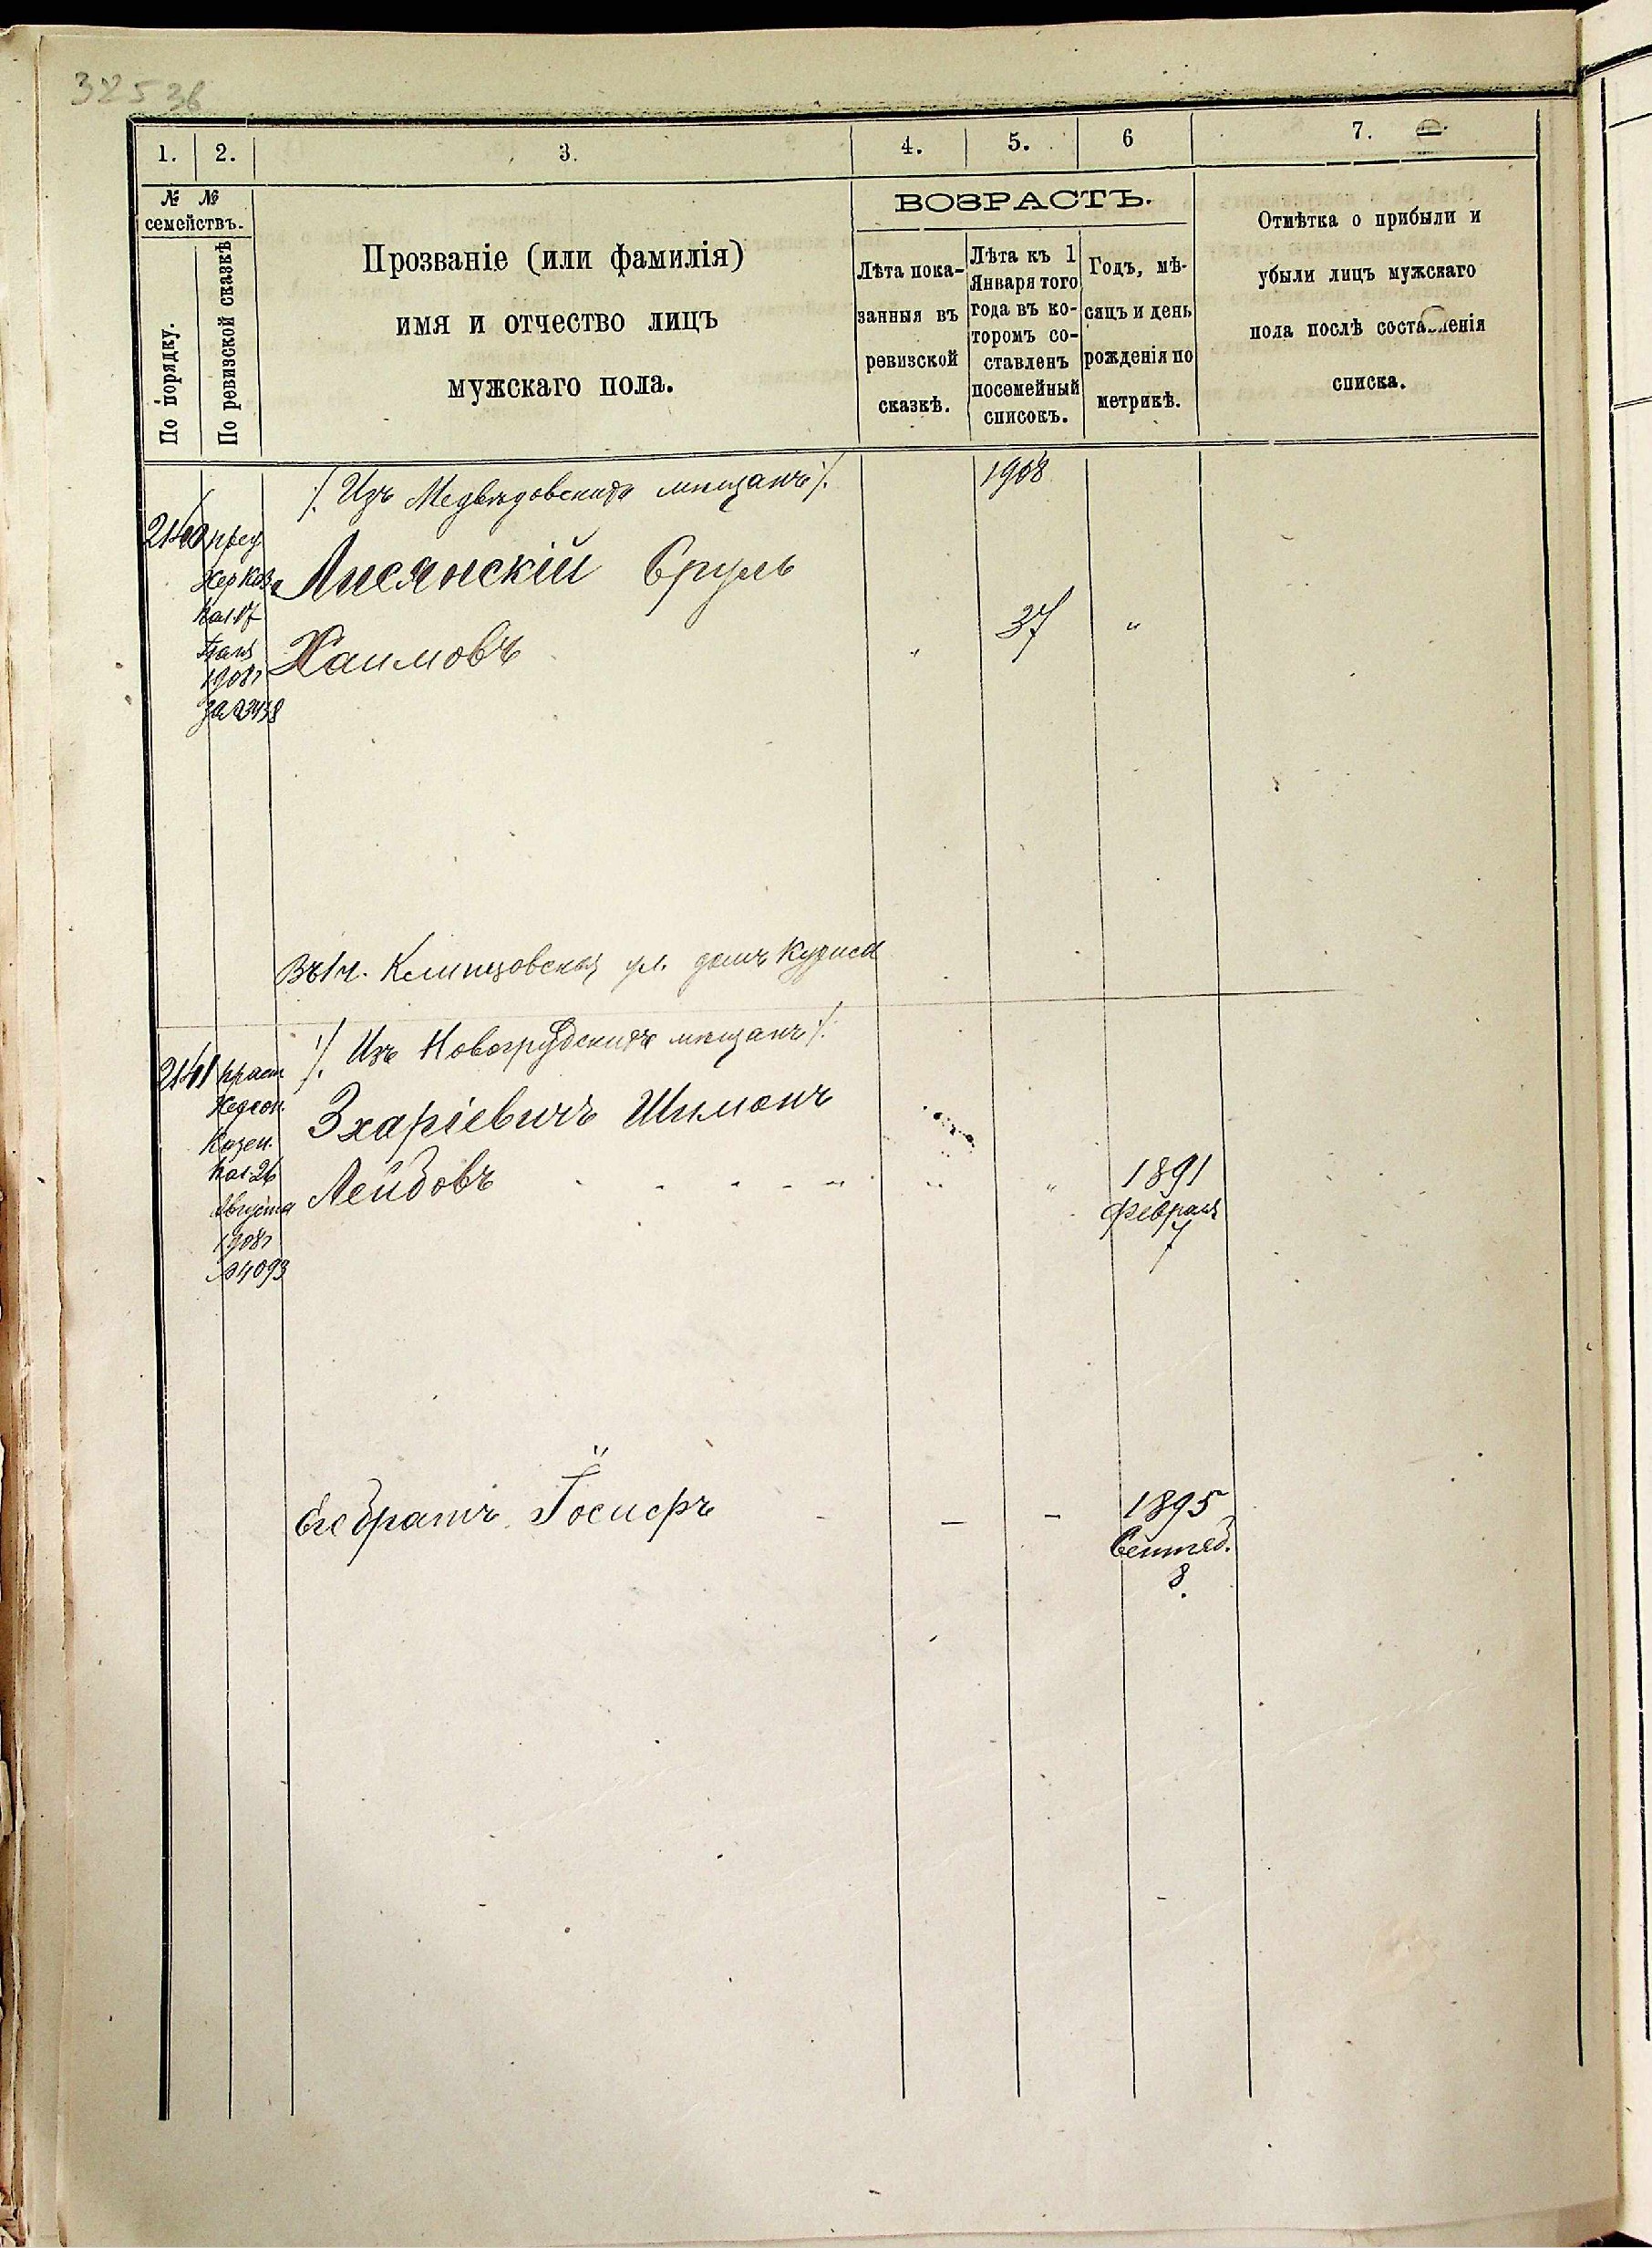 325 36
1. 2. 3. 4. 5. 6 7.
№ №
семействъ.
По порядку.
По ревизской сказкѣ
Прозваніе (или фамилія)
имя и отчество лицъ
мужскаго пола.
ВОЗРАСТЪ.
Лѣта пока-
занныя въ
ревизской
сказкѣ.
Лѣта къ 1
Января того
года въ ко-
торомъ со-
ставленъ
посемейный
списокъ.
Годъ, мѣ-
сяцъ и день
рожденія по
метрикѣ.
Отмѣтка о прибыли и
убыли лицъ мужскаго
пола послѣ составленія
списка.
/. Изъ Медвѣдовскихъ мѣщанъ /.
1908
2140 пред
Хер Каз.
Пал. 17
1908г
за №3458
Лисянскій Сруль
Хаимовъ
37 "
Въ 1 ч. дом Куриса
/. Изъ Новогрудскихъ мѣщанъ /.
2141
Херсон.
Казен.
Пал. 26
Августа
1908г
№4093
Зхаріевичъ Шимонъ
Лейбовъ
1891
Февраля
7
Его братъ Іосифъ
1895
Сентяб.
8.